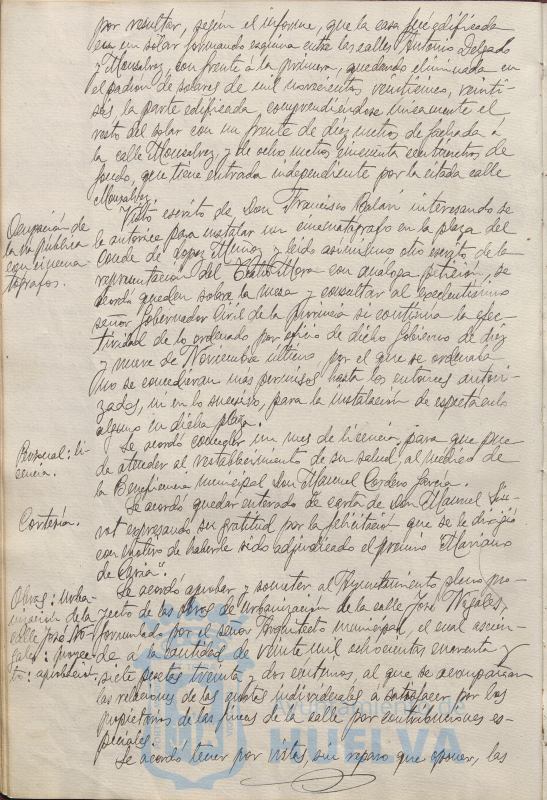 por resultar, según el informe, que la casa fué edificada
en un solar formando esquina entre las calles Antonio Delgado
y Monsalvez, con frente á la primera, quedando eliminada en
el padron de solares de mil novecientos veintiuno, veinti-
seis, la parte edificada, comprendiéndose unicamente el
resto del solar con un frente de diez metros de fachada á
la calle Monsalvez, y de ocho metros cincuenta centimetros de
fondo, que tiene entrada independiente por la citada calle
Monsalvez.
Ocupación de
la vía pública
con cinema-
tógrafos.
Vistó escrito de Don Francisco interesando se
le autorice para instalar un cinematógrafo en la plaza del
Conde de Lopez Muñoz y leido asimismo otro escrito de la
representación del Teatro Mora con análoga petición, se
acordó queden sobre la mesa y consultar al Excelentísimo
señor Gobernador Civil de la provincia si continúa la efec-
tividad de lo ordenado por oficio de dicho Gobierno de diez
y nueve de Noviembre último, por el que se ordenaba
no se concedieran más permisos hasta los entonces autori-
zados, ni en lo sucesivo, para la instalación de espectáculo
alguno en dicha plaza.
Personal: li-
cencia.
Se acordó conceder un mes de licencia, para que pue-
da atender al restablecimiento de su salud, al médico de
la Beneficencia municipal Don Manuel Cordero Garcia.
Cortesía.
Se acordó quedar enterado de carta de Don Manuel Siu-
rot expresando su gratitud por la felicitación que se le dirigió
con motivo de haberle sido adjudicado el premio "Mariano
de Cavia".
Obras: Urba-
nización de la
calle José No-
gales: proyec-
to: aprobación.
Se acordó aprobar y someter al Ayuntamiento pleno pro-
yecto de las obras de urbanización de la calle José Nogales,
formulado por el señor Arquitecto municipal, el cual ascien-
de á la cantidad de veinte mil ochocientas cuarenta y
siete pesetas treinta y dos centimos, al que se acompañan
las relaciones de las cuotas individuales á satisfacer por los
propietarios de las fincas de la calle por contribuciones es-
peciales.
Se acordó tener por vistas, sin reparo que oponer, las
Ayuntamiento de
HUELVA